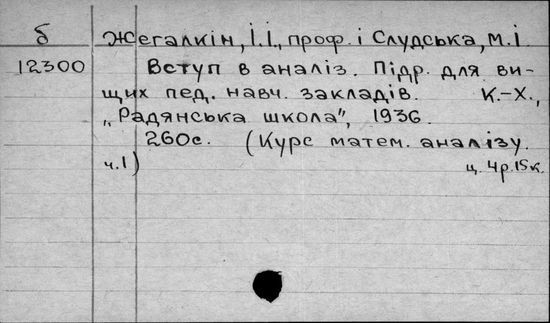 б Жегалкін, І.І., проф. і Слудська, М.І.
12300 Вступ в аналіз. Підр. для ви-
щих пед. навч. закладів. К.-Х.,
„Радянська школа", 1936.
260с. (Курс матем. аналізу.
ч.І) ц. 4р.15к.